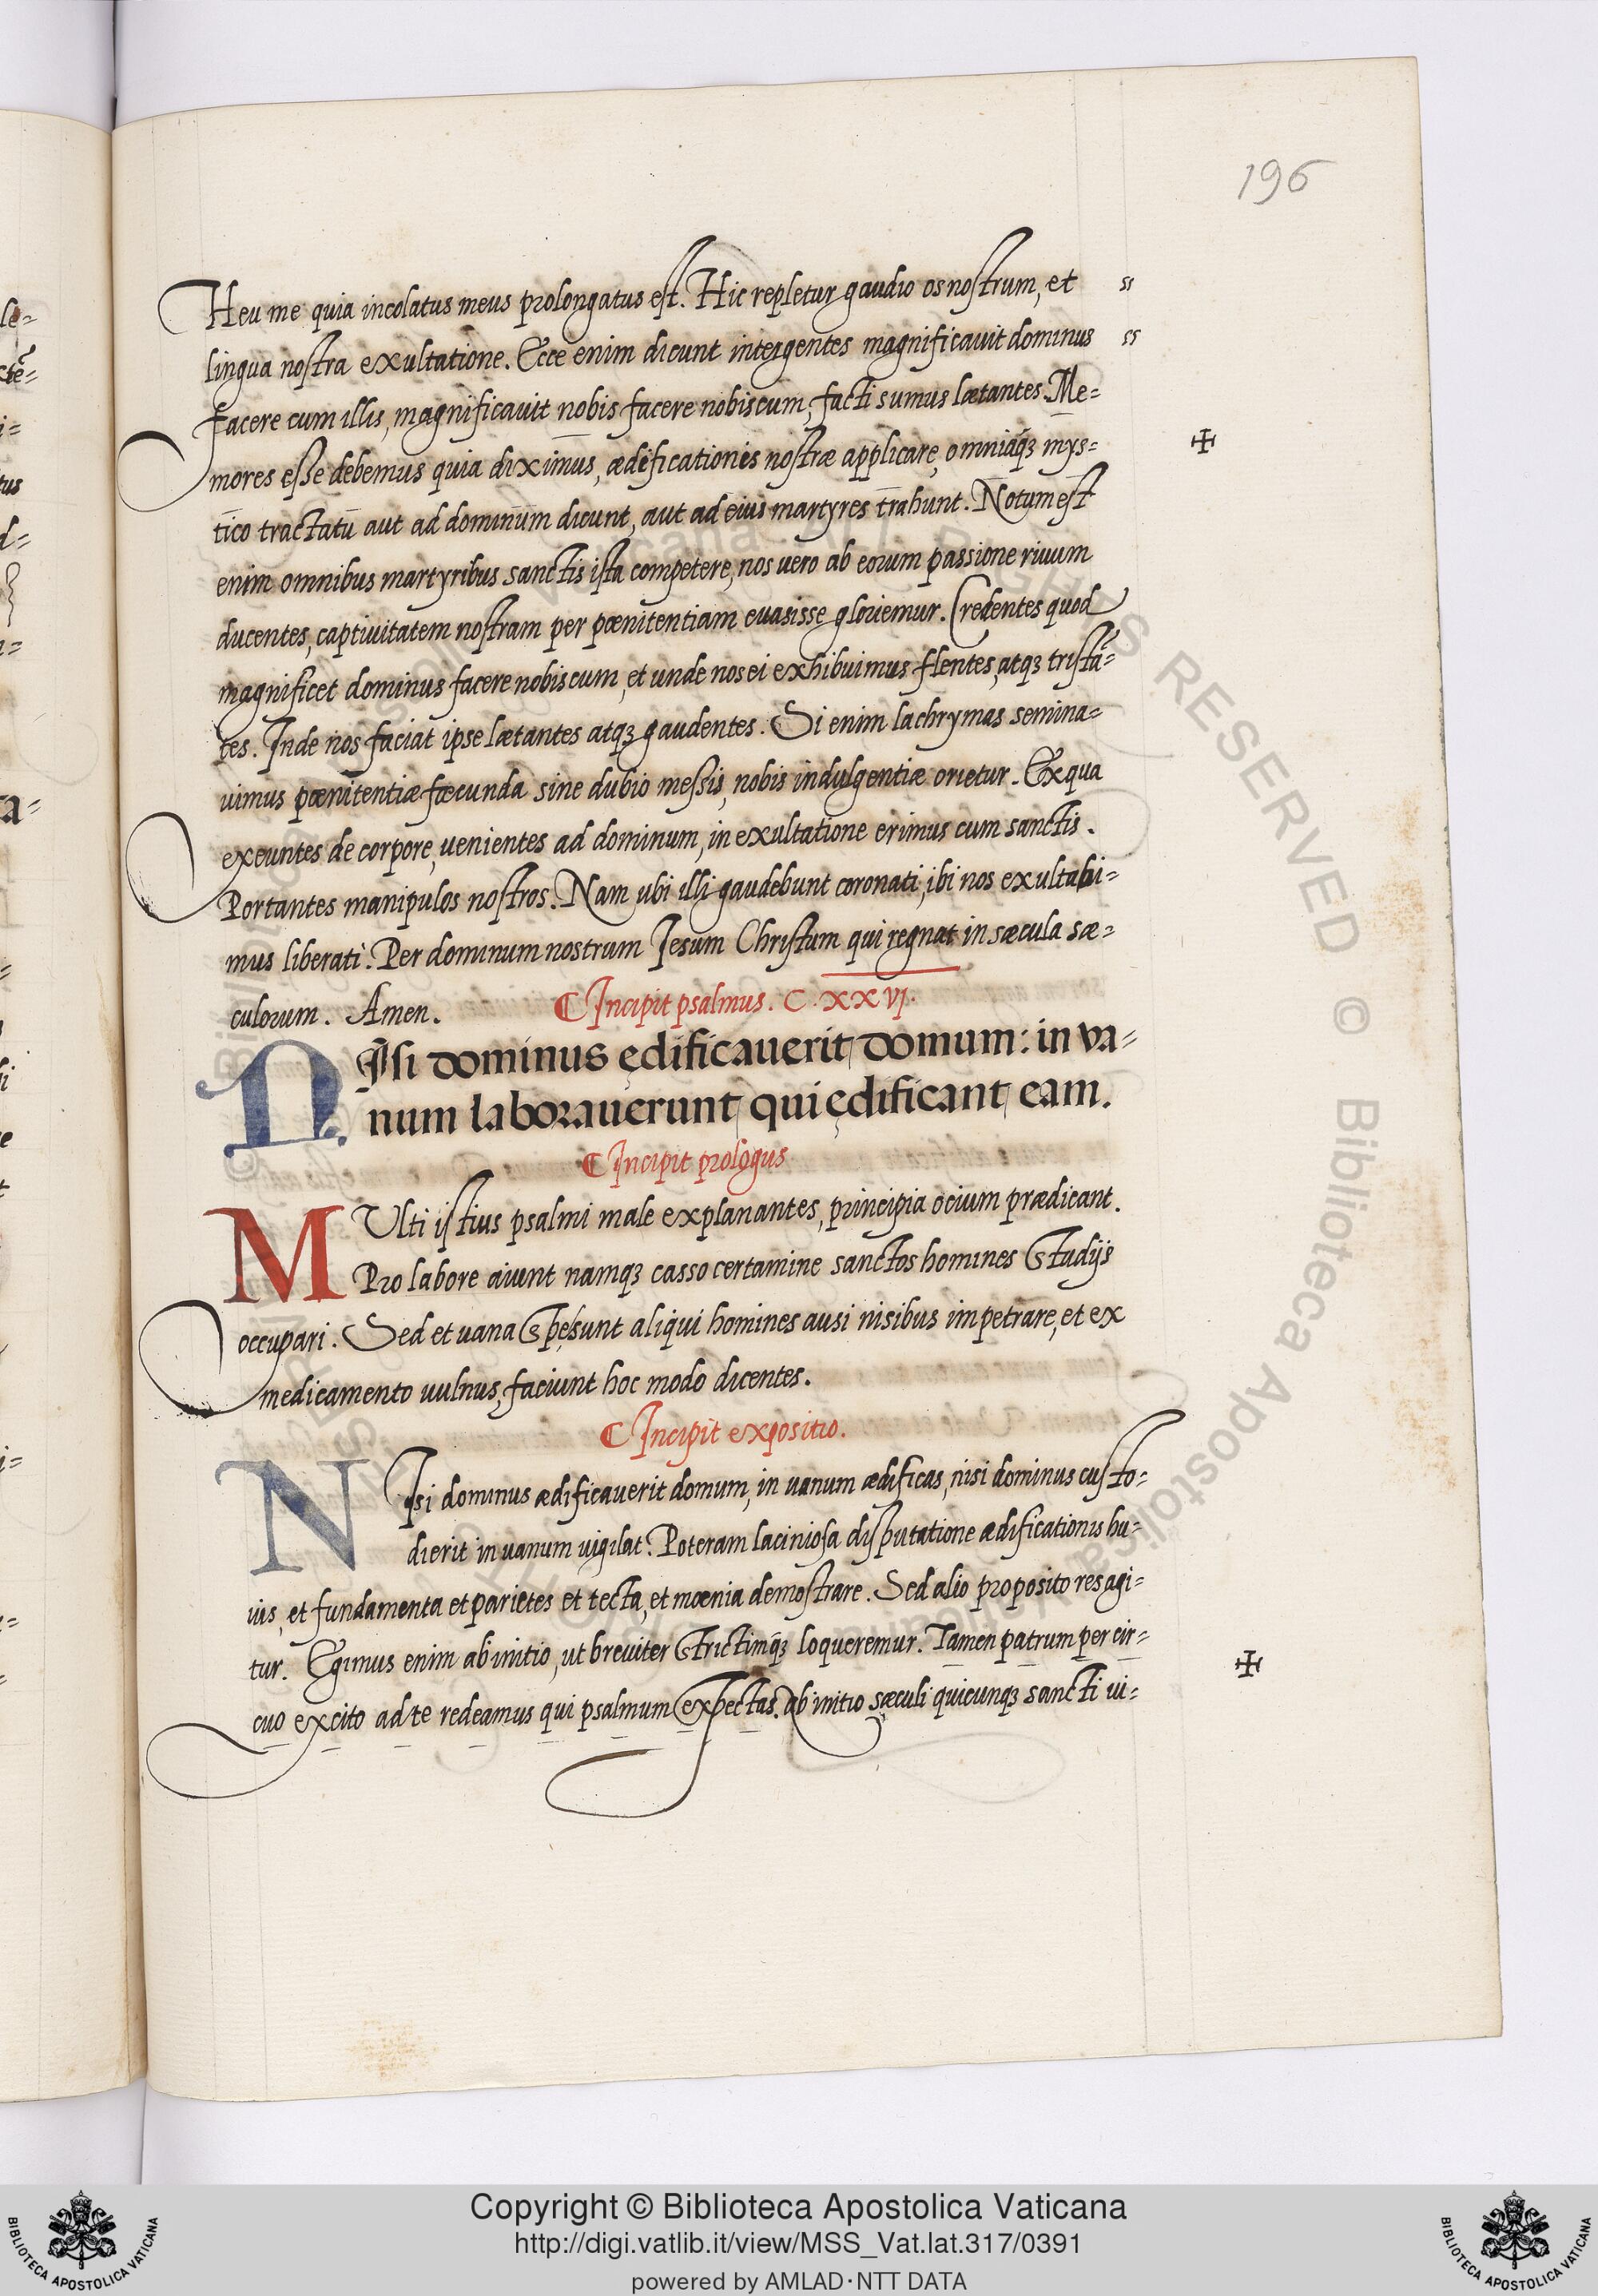 196
Heu me quia incolatus meus prolongatus est. Hic repletur gaudio os nostrum, et
lingua nostra exultatione. Ecce enim dicunt inter gentes magnificavit dominus
facere cum illis, magnificavit nobis facere nobiscum, facti sumus lætantes. Me=
mores esse debemus quia diximus, ædificationis nostræ applicare, omniaq&#x301;ꝫ mys=
tico tractatū aut ad dominum dicunt, aut ad eius martyres trahunt. Notum est
enim omnibus martyribus sanctis ista competere, nos uero ab eorum passione riuum
ducentes, captiuitatem nostram per pœnitentiam euasisse gloriemur. Credentes quod
magnificet dominus facere nobiscum, et unde nos ei exhibuimus flentes, atqꝫ tristā=
tes. Inde nos faciat ipse lætantes atqꝫ gaudentes. Si enim lachrymas semina=
uimus pœnitentiæ fœcunda sine dubio messis, nobis indulgentiæ orietur. Ex qua
exeuntes de corpore, uenientes ad dominum, in exultatione erimus cum sanctis.
Portantes manipulos nostros. Nam ubi illi gaudebunt coronati, ibi nos exultabi=
mus liberati. Per dominum nostrum Jesum Christum qui regnat in sæcula sæ=
culorum. Amen. ¶ Incipit psalmus. C.XXVJ.
NIsi dominus ędificauerit domum: in va=
num laborauerunt qui ędificant eam.
¶ Incipit prologus
MUlti istius psalmi male explanantes, principia ocium prædicant.
Pro labore aiunt namqꝫ casso certamine sanctos homines studijs
occupari. Sed et uana spe sunt aliqui homines ausi nisibus impetrare, et ex
medicamento uulnus, faciunt hoc modo dicentes.
¶ Incipit expositio.
NIsi dominus ædificauerit domum, in uanum ædificas, nisi dominus custo=
dierit in uanum uigilat. Poteram laciniosa disputatione ædificationis hu=
ius, et fundamenta et parietes et tecta, et mœnia demostrare. Sed alio proposito res agi=
tur. Egimus enim ab initio, ut breuiter strictimq́ꝫ loqueremur. Tamen patrum per cir=
cuo excito ad te redeamus qui psalmum expectas. ab initio sæculi quicunqꝫ sancti ui=
Copyright © Biblioteca Apostolica Vaticana
http://digi.vatlib.it/view/MSS_Vat.lat.317/0391
powered by AMLAD·NTT DATA